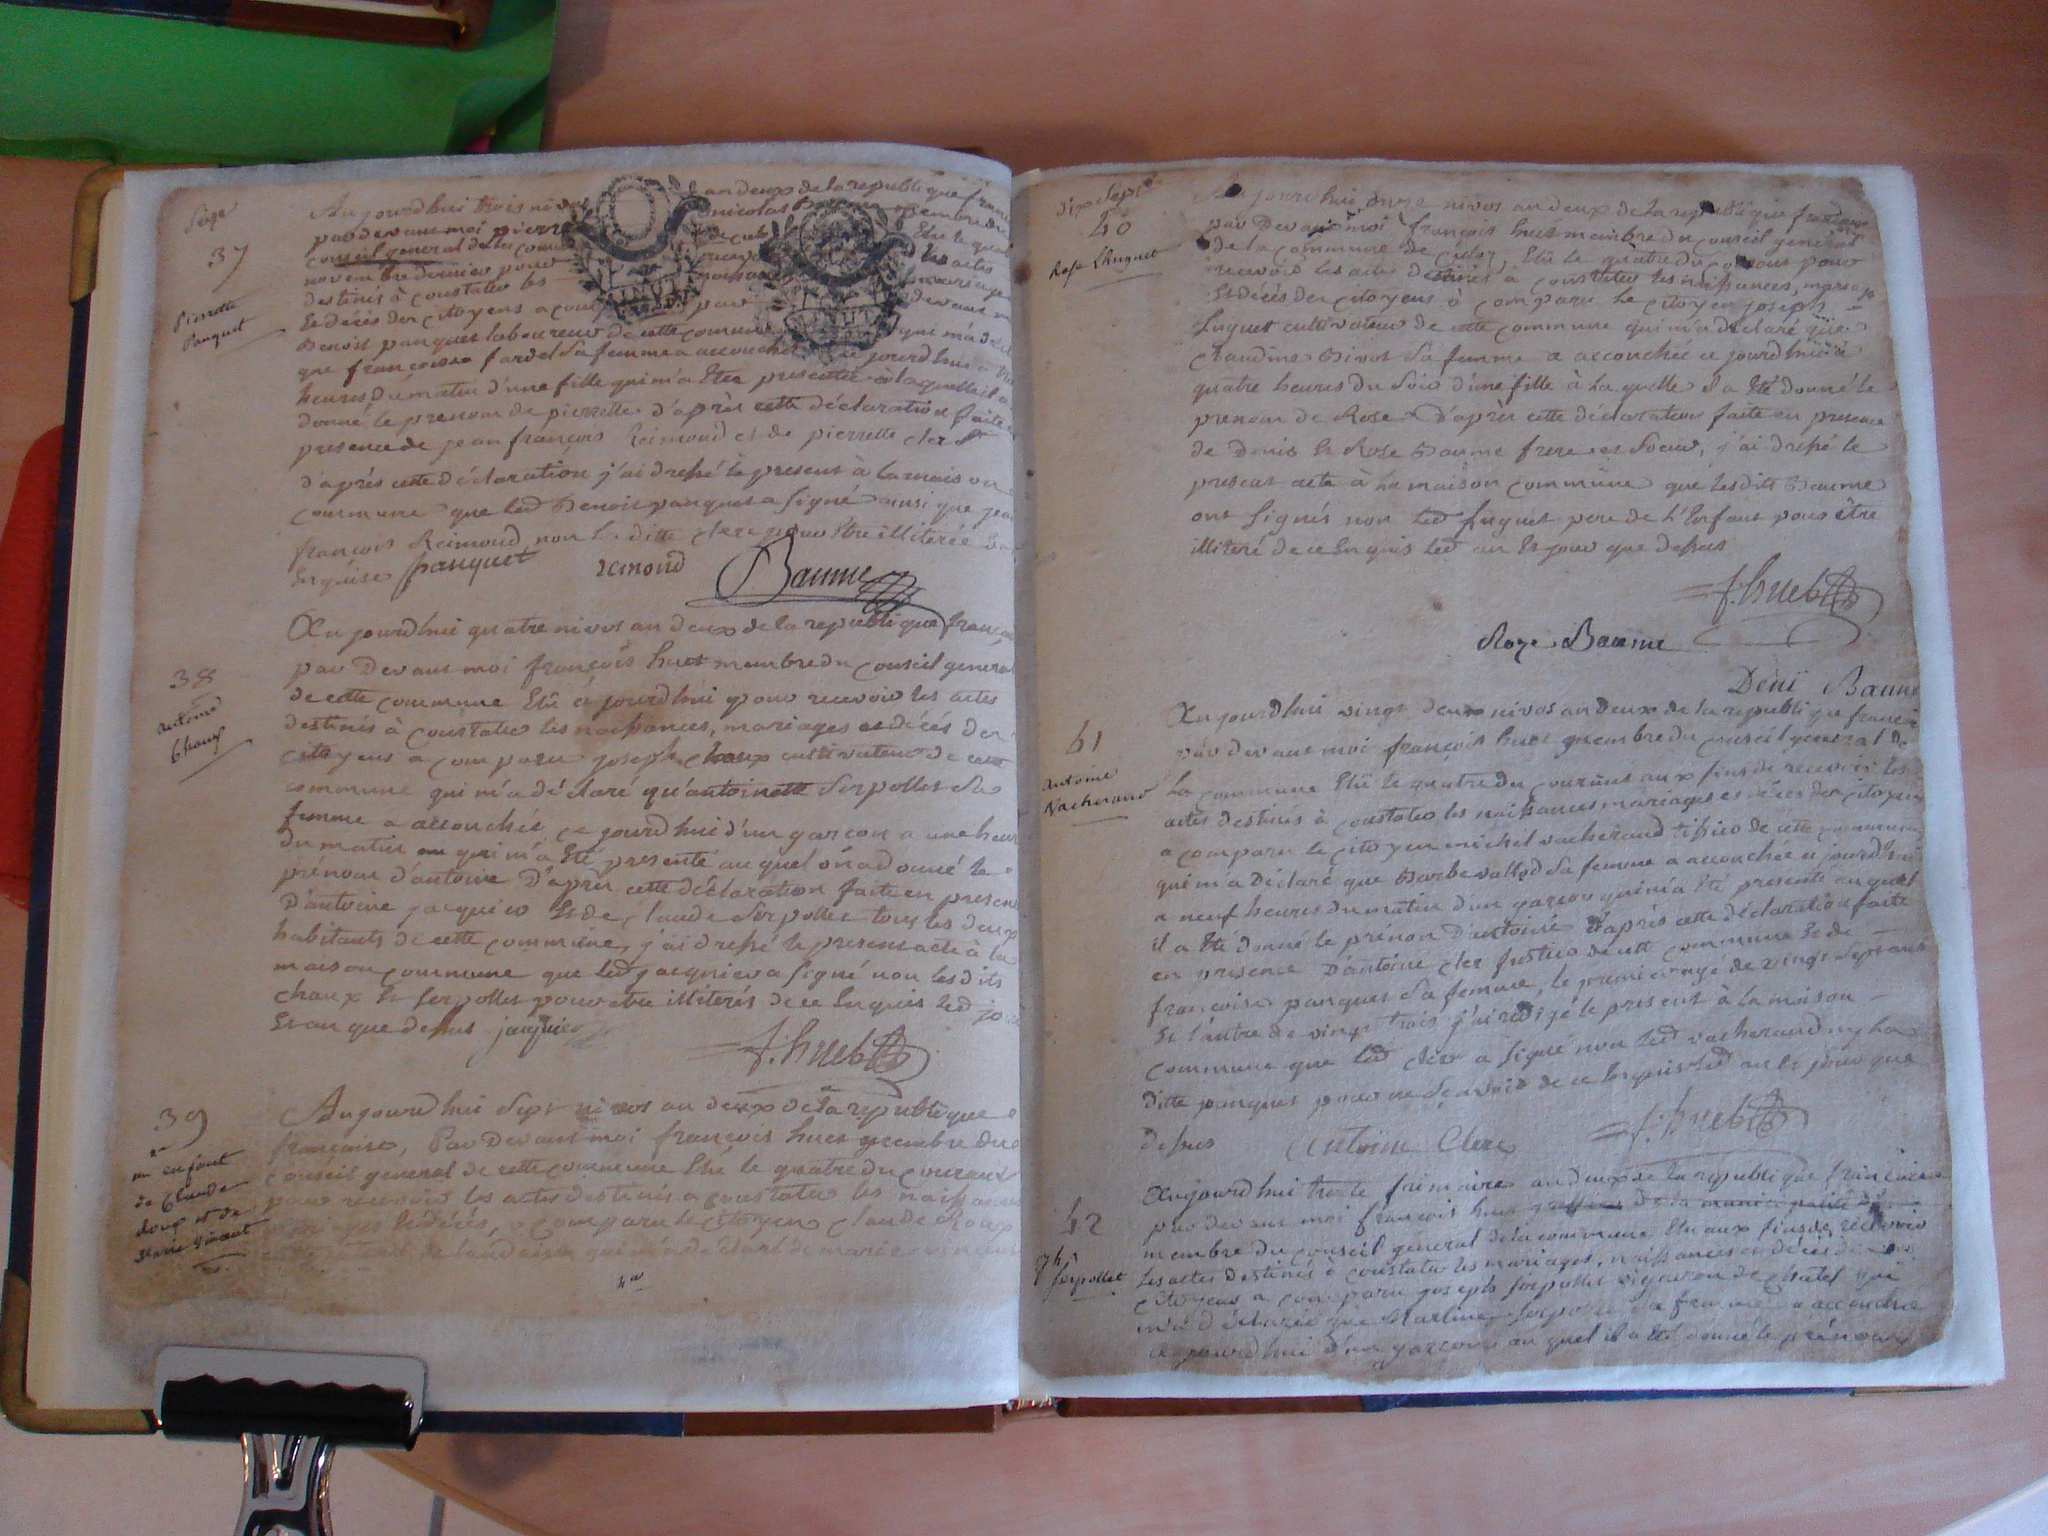 Seize
37
Pierrette
panquet
Aujourdhui trois nivos an deux de la republique franc
par devant moi pierre nicolas membre du
conseil general de la Comm de cul Elu le
novembre dernier pour les actes
destinés à constater les mariages
Et décés des citoyens a comp par devant m
Benoit panquet laboureur de cette comune qui m'a decl
que françoise farod Sa femme a accouchée ce jourdhui a
heures du matin d'une fille qui m'a Etée presentée à laquelle il a
donné le prenom de pierrette d'après cette déclaration faite en
presence de jean françois Reimond et de pierrette clerc
d'après cette déclaration j'ai dressé le present à la maison
commune que led Benoit panquet a signé ainsi que jean
françois Reimond non la ditte clerc pour Etre illiterée
Enquise panquet remond Baume
38
antoine
Chaux
Aujourdhui quatre nivos an deux de la republique franç
par Devant moi françois huet membre du Conseil general
de cette commune Elu ce jourdhui pour recevoir les actes
destinés à constater les naissances, mariages et décés des
citoyens a comparu joseph chaux cultivateur de cette
commune qui m'a déclaré qu'antoinette Serpollet Sa
femme a accouchée ce jourdhui d'un garçon a une heur
du matin qui m'a Eté presenté au quel on a donné le
prénom d'antoine D'après cette déclaration faite en presen
D'antoine jacquier Et de Claude Serpollet tous les deux
habitants de cette commune, j'ai dressé le present acte à la
maison commune que led jacquier a signé non les dits
chaux Et Serpollet pour etre illiterés de ce Enquis led jo
Et an que dessus jacquier
f. huet
39
un enfant
de Claude
Roux et de
Marie Vincent
Aujourdhui Sept nivos an deux de la republique
françaisse, Par Devant moi françois huet membre du
conseil general de cette commune Elu le quatre du courant
pour recevoir les actes destinés a constater les naissances
mariages Et décés, a comparu le citoyen claude Roux
qui m'a déclaré de marie vincent
dix Sept
40
Rose Lhuguet
Aujourdhui onze nivos an deux de la republique française
par Devant moi françois huet membre du conseil general
de la commune de culoz, Elu le quatre du courant pour
recevoir les actes destinés à constater les naissances, mariage
Et décés des citoyens à comparu le citoyen joseph
Luguet cultivateur de cette commune qui m'a déclaré que
claudine Sa femme a accouchée ce jourdhui à
quatre heures du Soir d'une fille à la quelle il a Eté donné le
prenom de Rose D'après cette déclaration faite en presence
de Denis Et Rose Baume frere et Soeur, j'ai dressé le
present acte à la maison commune que lesdits Baume
ont signés non led Luguet pere de l'Enfant pour être
illiteré de ce Enquis led an Et jour que dessus
f. huet
Roze Baume
Deni Baume
41
antoine
Vacherand
Aujourdhui vingt deux nivos an deux de la republique franc
par devant moi françois huet membre du conseil general de
la commune Elu le quatre du courant aux fins de recevoir les
actes destinés à constater les naissances mariages et décés des citoyens
a comparu le citoyen michel vacherand tissier de cette commune
qui m'a Déclaré que Barbe vallod Sa femme a accouchée ce jourdhui
a neuf heures du matin d'un garçon qui m'a Eté presenté au quel
il a Eté donné le prénom D'antoine D'après cette déclaration faite
en presence D'antoine clerc de cette commune Et de
françoise panquet Sa femme, le premier agé de vingt Sept ans
Et l'autre de vingt trois j'ai redigé le present à la maison
commune que led clerc a signé non led vacherand ny la
ditte panquet pour ne Scavoir de ce Enquis led an Et jour que
dessus antoine Clerc f. huet
42
jph
Serpollet
Aujourdhui trente frimaire an deux de la republique française
par devant moi françois huet officier de la municipalité
membre du conseil general de la commune Elu aux fins de recevoir
les actes destinés à constater les mariages, naissances et décés des
citoyens a comparu joseph Serpollet vigneron de chatel qui
m'a déclaré que Marline Serpollet Sa femme a accouchée
ce jourdhui d'un garçon au quel il a Eté donné le prénom